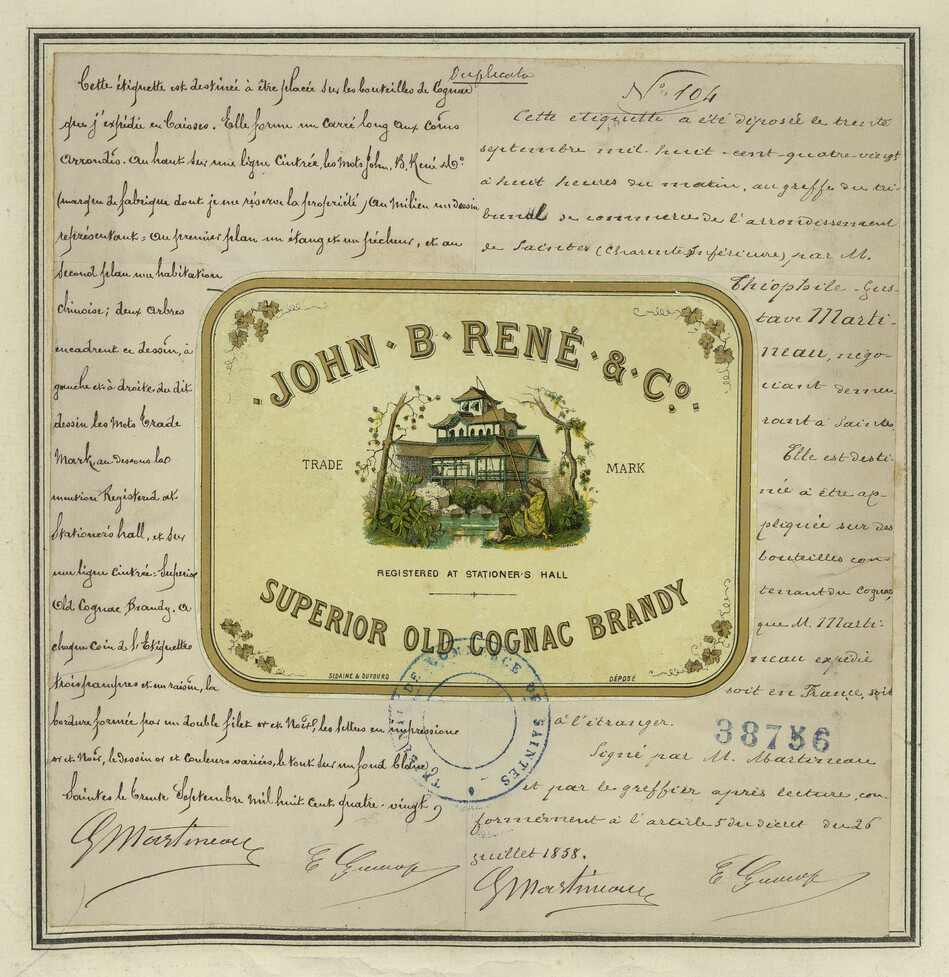 Duplicata
Cette étiquette est destinée à être placée sur les bouteilles de Cognac
que j'expédie en Caisses. Elle forme un Carré long aux coins
Arrondis. Au haut sur une ligne Cintrée, les mots John, B. René & Co
(marque de fabrique dont je me réserve la propriété) Au milieu un dessin
représentant = au premier plan un étang et un pêcheur, et au
second plan une habitation
chinoise; deux arbres
encadrent ce dessin, à
gauche et à droite du dit
dessin les mots Trade
Mark, au dessous la
mention Registered at
Stationer's hall, et sur
une ligne cintrée = Superior
Old Cognac Brandy. A
chaque coin de l'Etiquette
trois pampres et un raisin, la
bordure formée par un double filet or et Noir, les lettres en impression
or et Noir, le dessin or et Couleurs variées, le tout sur un fond
Saintes le trente Septembre Mil huit Cent quatre-vingt
GMartineau
N° 104
Cette étiquette a été déposée le trente
septembre mil huit-cent-quatre vingt
à huit heures du matin, au greffe du tri-
bunal de commerce de l'arrondissement
de Saintes (Charente Inférieure) par M.
Théophile-Gus-
tave Marti-
neau, négo-
ciant demeu
rant à Saintes
Elle est desti-
née à être ap-
pliquée sur des
bouteilles con-
tenant du Cognac
que M. Marti-
neau expédie
soit en France, soit
à l'étranger.
Signé par M. Martineau
et par le greffier après lecture, con-
formément à l'article 5 du décret du 26
juillet 1858.
GMartineau
38756
JOHN · B · RENÉ · & · Co.
TRADE MARK
REGISTERED AT STATIONER'S HALL
SUPERIOR OLD COGNAC BRANDY
SIDAINE & DUFOURQ
DÉPOSÉ
TRIBUNAL DE COMMERCE DE SAINTES